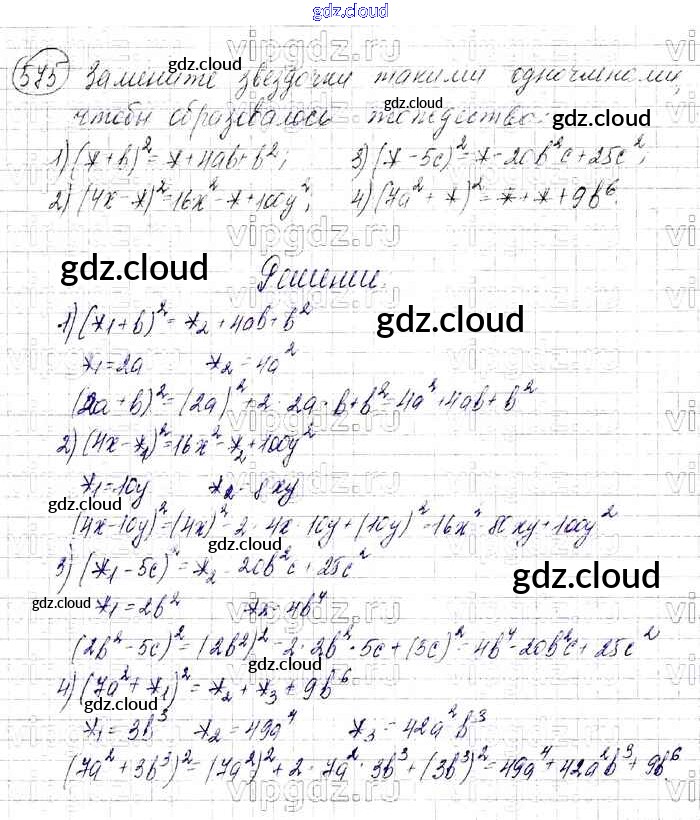 gdz.cloud
575 Замените звёздочки такими одночленами,
чтобы образовалось тождество:
1) (*+b)²=*+4ab+b²; 3) (*-5c)²=*-20b²c+25c²;
2) (4x-*)²=16x²-*+100y²; 4) (7a²+*)²=*+*+9b⁶.
gdz.cloud
Решение.
1) (*₁+b)²=*₂+4ab+b²
gdz.cloud
*₁=2a *₂=4a²
(2a+b)²=(2a)²+2·2a·b+b²=4a²+4ab+b²
2) (4x-*₁)²=16x²-*₂+100y²
*₁=10y *₂=8xy
gdz.cloud
(4x-10y)²=(4x)²-2·4x·10y+(10y)²=16x²-80xy+100y²
gdz.cloud
3) (*₁-5c)²=*₂-20b²c+25c²
gdz.cloud
*₁=2b² *₂=4b⁴
gdz.cloud
(2b²-5c)²=(2b²)²-2·2b²·5c+(5c)²=4b⁴-20b²c+25c²
gdz.cloud
4) (7a²+*₁)²=*₂+*₃+9b⁶
gdz.cloud
*₁=3b³ *₂=49a⁴ *₃=42a²b³
(7a²+3b³)²=(7a²)²+2·7a²·3b³+(3b³)²=49a⁴+42a²b³+9b⁶
vipgdz.ru